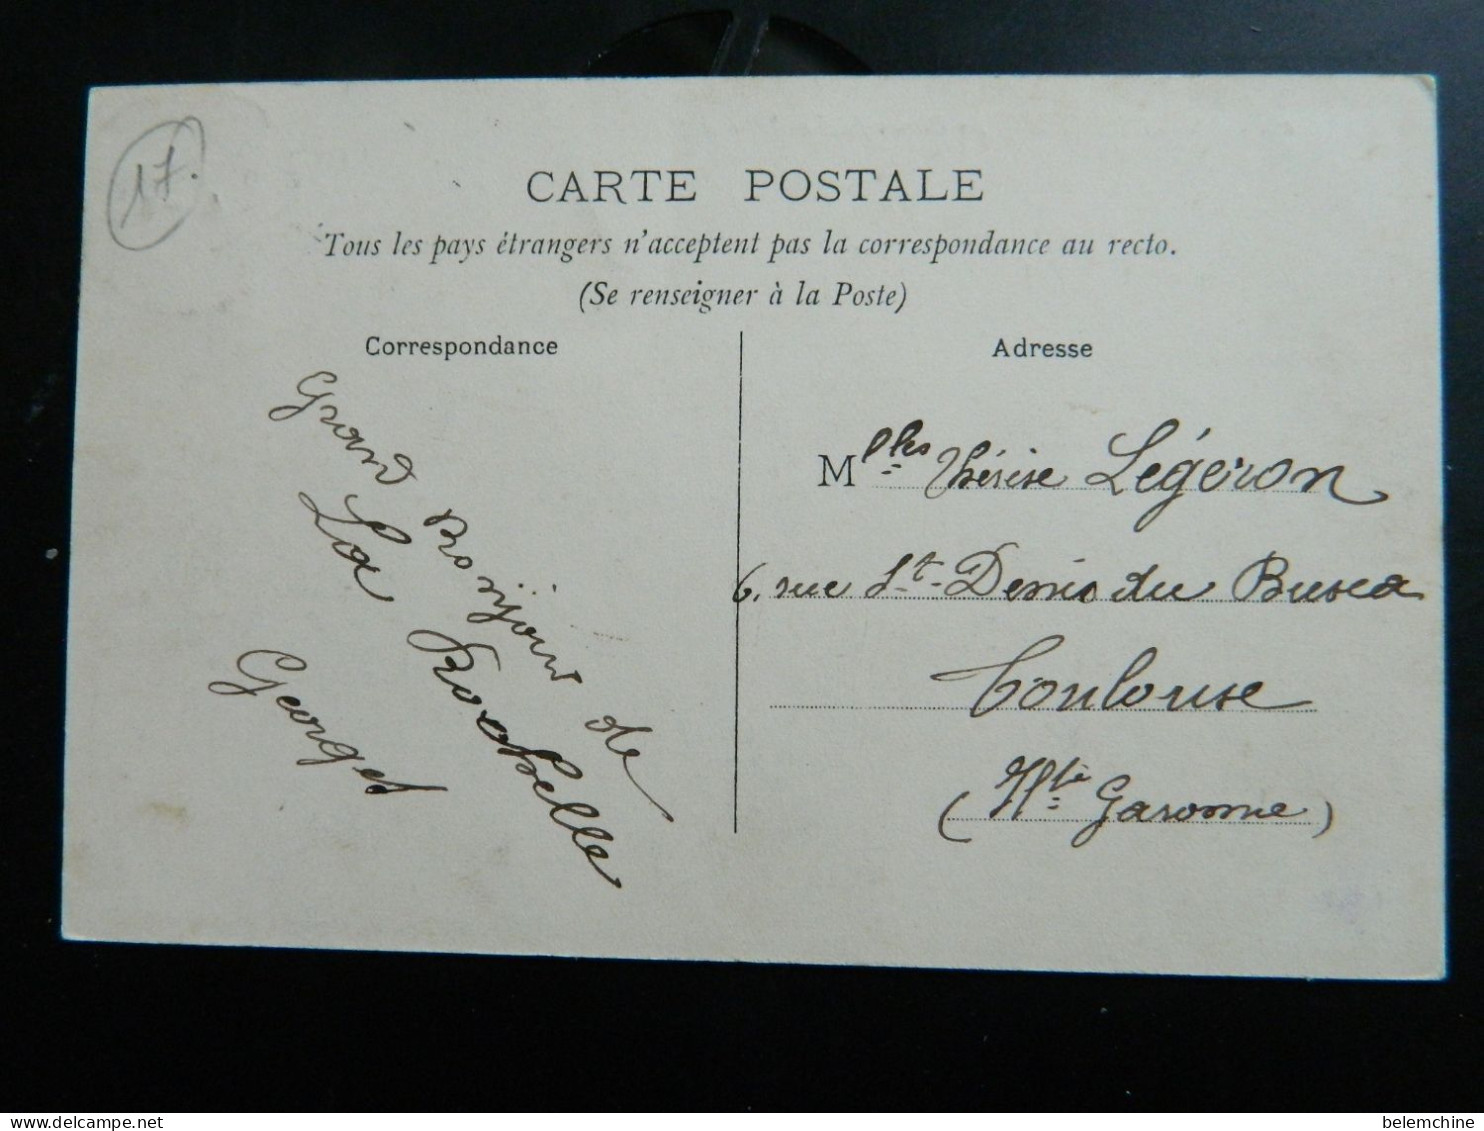 17.
CARTE POSTALE
Tous les pays étrangers n'acceptent pas la correspondance au recto.
(Se renseigner à la Poste)
Correspondance
Grand Bonjour de
La Rochelle
Georges
Adresse
Mlles Thérèse Légeron
6, rue St-Denis du Busca
Toulouse
(Hte Garonne)
belemchine